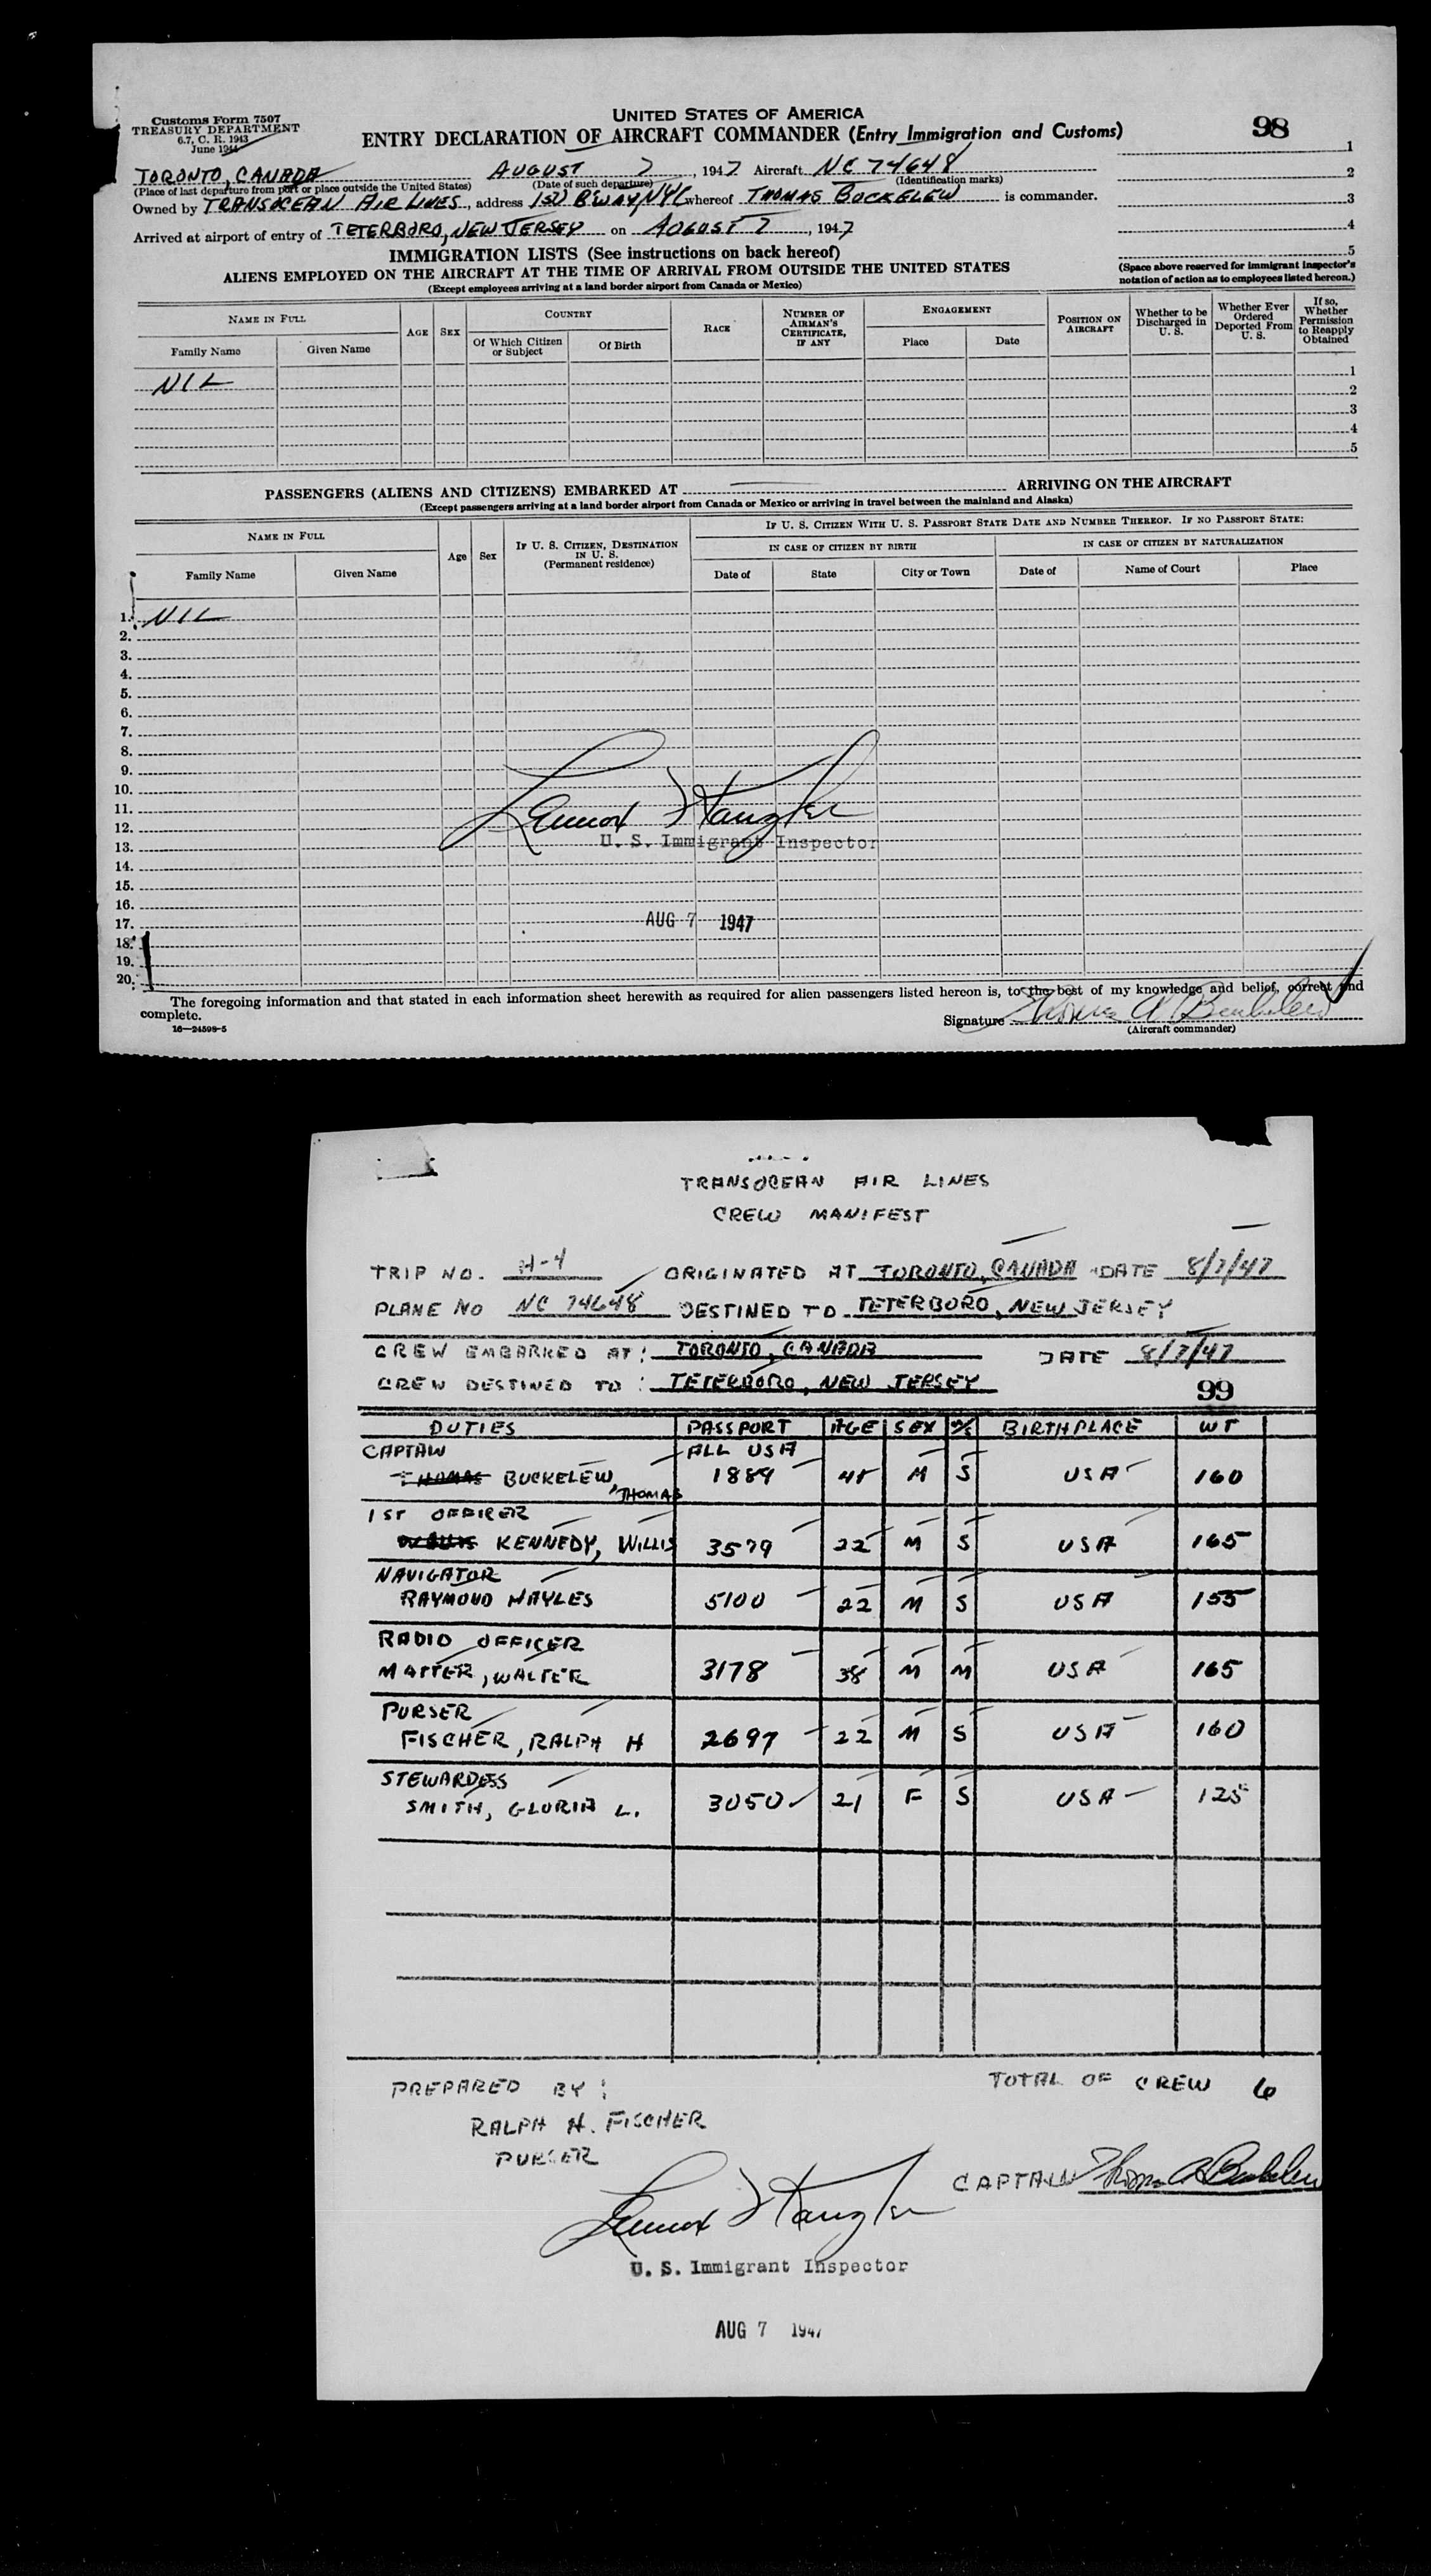 Customs Form 7507
TREASURY DEPARTMENT
6.7, C. R. 1943
June 1944
UNITED STATES OF AMERICA
ENTRY DECLARATION OF AIRCRAFT COMMANDER (Entry Immigration and Customs)
98
TORONTO, CANADA AUGUST 7, 1947 Aircraft NC 74648
(Place of last departure from port or place outside the United States) (Date of such departure) (Identification marks)
Owned by TRANSOCEAN AIR LINES, address BWAY, NYC whereof THOMAS BUCKELEW is commander.
Arrived at airport of entry of TETERBORO, NEW JERSEY on AUGUST 7, 1947
1
2
3
4
5
(Space above reserved for immigrant inspector's
notation of action as to employees listed hereon.)
IMMIGRATION LISTS (See instructions on back hereof)
ALIENS EMPLOYED ON THE AIRCRAFT AT THE TIME OF ARRIVAL FROM OUTSIDE THE UNITED STATES
(Except employees arriving at a land border airport from Canada or Mexico)
NAME IN FULL
Family Name Given Name
AGE SEX
COUNTRY
Of Which Citizen or Subject Of Birth
RACE
NUMBER OF AIRMAN'S CERTIFICATE, IF ANY
ENGAGEMENT
Place Date
POSITION ON AIRCRAFT
Whether to be Discharged in U. S.
Whether Ever Ordered Deported From U. S.
If so, Whether Permission to Reapply Obtained
NIL 1
2
3
4
5
PASSENGERS (ALIENS AND CITIZENS) EMBARKED AT ARRIVING ON THE AIRCRAFT
(Except passengers arriving at a land border airport from Canada or Mexico or arriving in travel between the mainland and Alaska)
NAME IN FULL
Family Name Given Name
Age Sex
IF U. S. CITIZEN, DESTINATION IN U. S.
(Permanent residence)
IF U. S. CITIZEN WITH U. S. PASSPORT STATE DATE AND NUMBER THEREOF. IF NO PASSPORT STATE:
IN CASE OF CITIZEN BY BIRTH IN CASE OF CITIZEN BY NATURALIZATION
Date of State City or Town Date of Name of Court Place
1. NIL
2.
3.
4.
5.
6.
7.
8.
9.
10.
11.
12.
13. U. S. Immigrant Inspector
14.
15.
16.
17. AUG 7 1947
18.
19.
20.
The foregoing information and that stated in each information sheet herewith as required for alien passengers listed hereon is, to the best of my knowledge and belief, correct and
complete.
16—24598-5
Signature Thomas A Buckelew
(Aircraft commander)
TRANSOCEAN AIR LINES
CREW MANIFEST
TRIP NO. H-4 ORIGINATED AT TORONTO, CANADA DATE 8/7/47
PLANE NO NC 74648 DESTINED TO TETERBORO, NEW JERSEY
CREW EMBARKED AT: TORONTO, CANADA DATE 8/7/47
CREW DESTINED TO: TETERBORO, NEW JERSEY
99
DUTIES PASSPORT AGE SEX M/S BIRTHPLACE WT
CAPTAIN ALL USA
THOMAS BUCKELEW, THOMAS 1889 M S USA 160
1ST OFFICER
WILLIS KENNEDY, WILLIS 3579 22 M S USA 165
NAVIGATOR
RAYMOND HAYLES 5100 22 M S USA 155
RADIO OFFICER
MATTER, WALTER 3178 38 M M USA 165
PURSER
FISCHER, RALPH H 2697 22 M S USA 160
STEWARDESS
SMITH, GLORIA L. 3050 21 F S USA 125
PREPARED BY: TOTAL OF CREW 6
RALPH H. FISCHER
PURSER
CAPTAIN Thomas A Buckelew
U. S. Immigrant Inspector
AUG 7 1947